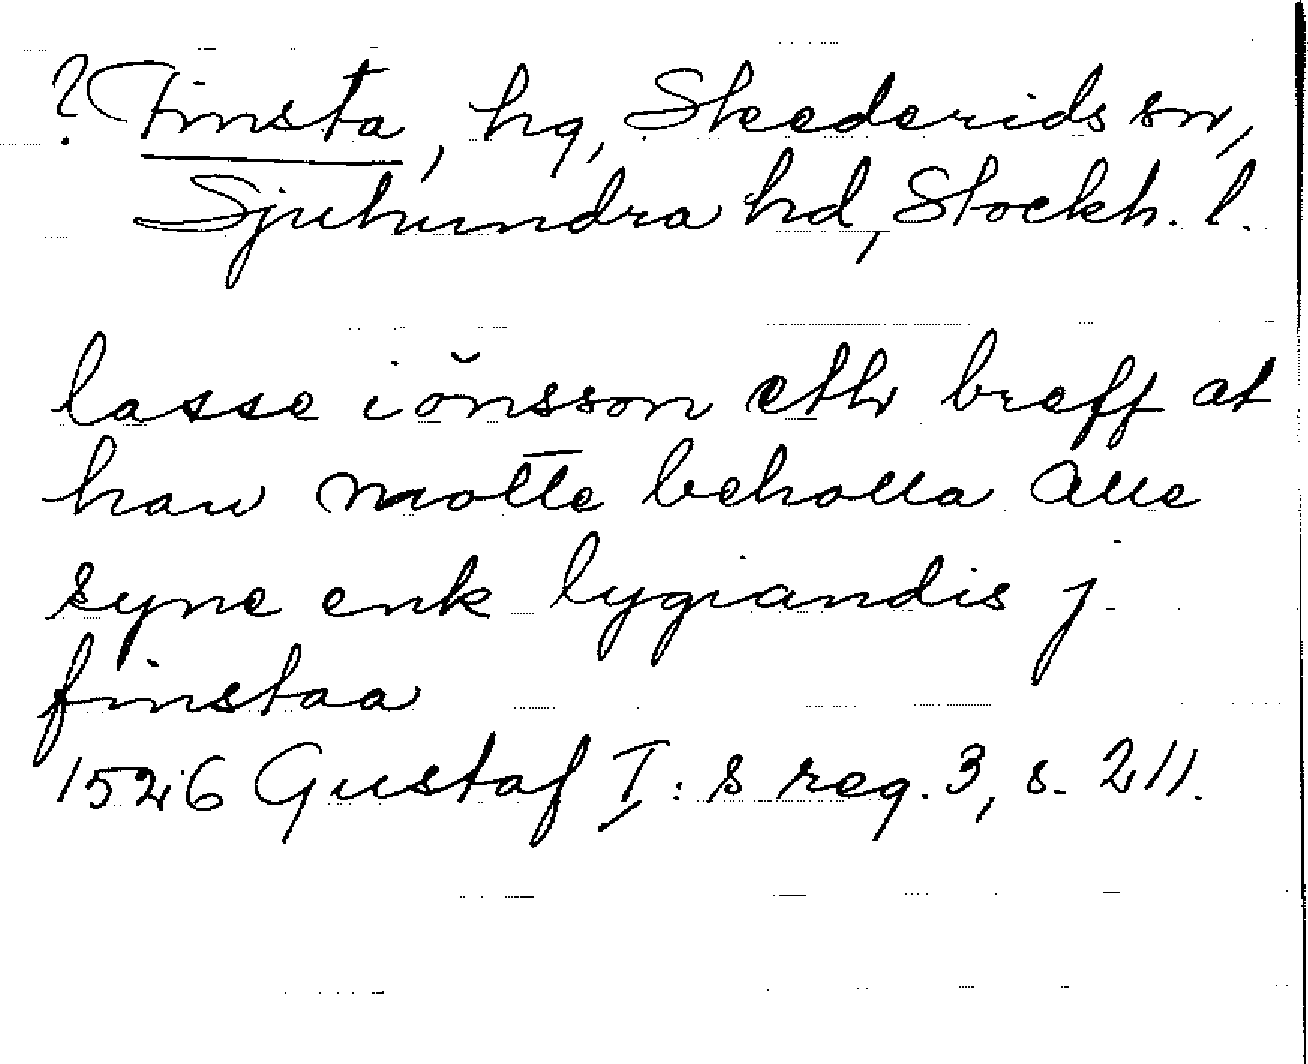 ? Finsta, hg, Skederids sn,
Sjuhundra hd, Stockh. l.
lasse iǒnsson eth breff at
han motte beholla alle
syne enk lygiandis j
finstaa
1526 Gustaf I:s reg. 3, s. 211.